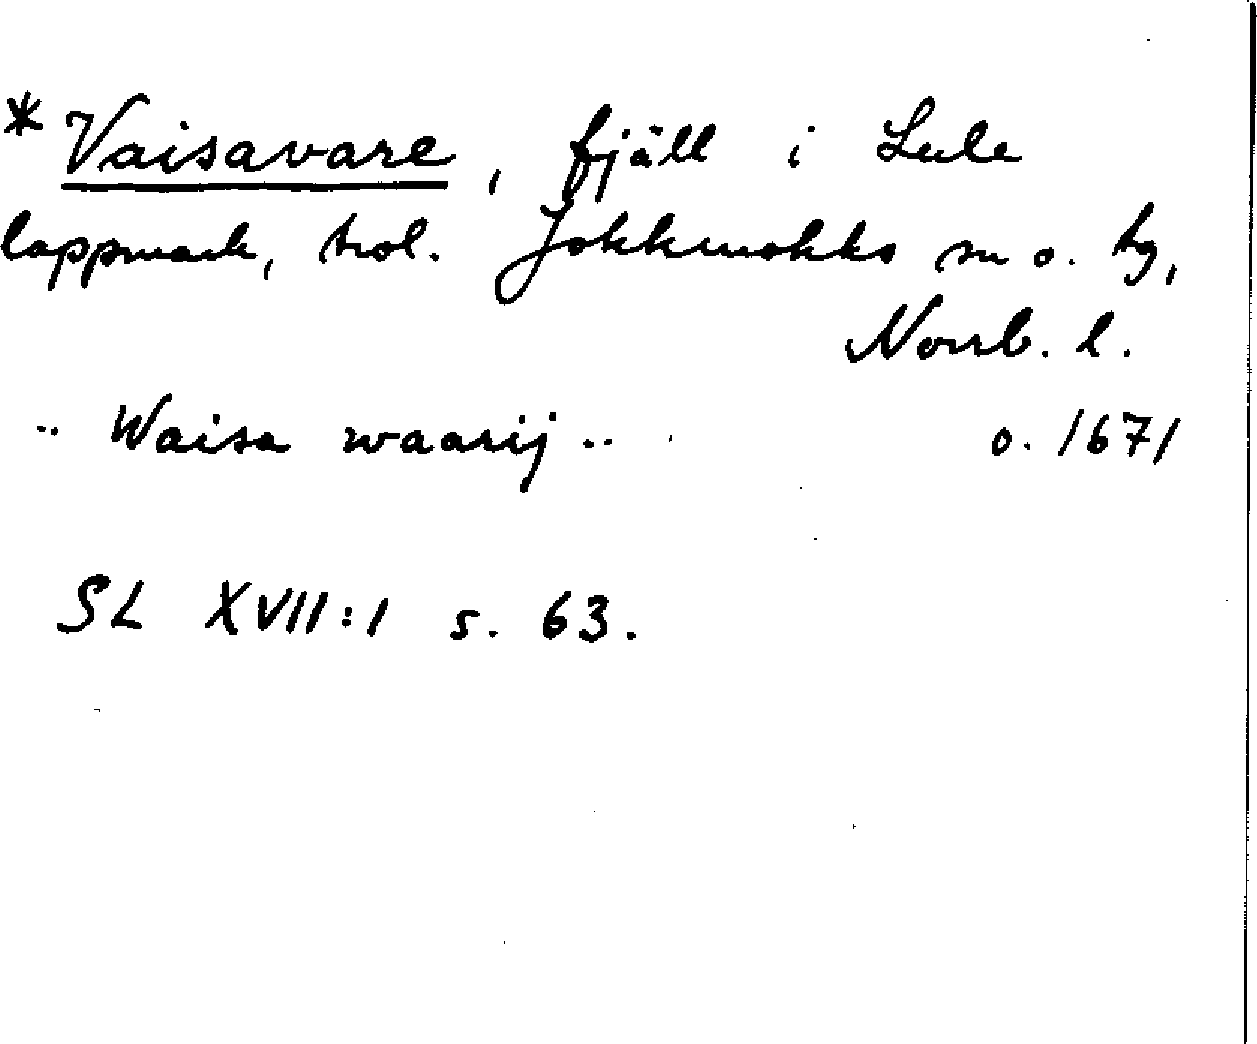 * Vaisavare, fjäll i Lule
lappmark, trol. Jokkmokks sn o. tg,
Norrb. l.
.. Waisa waarij .. o. 1671
SL XVII:1 s. 63.